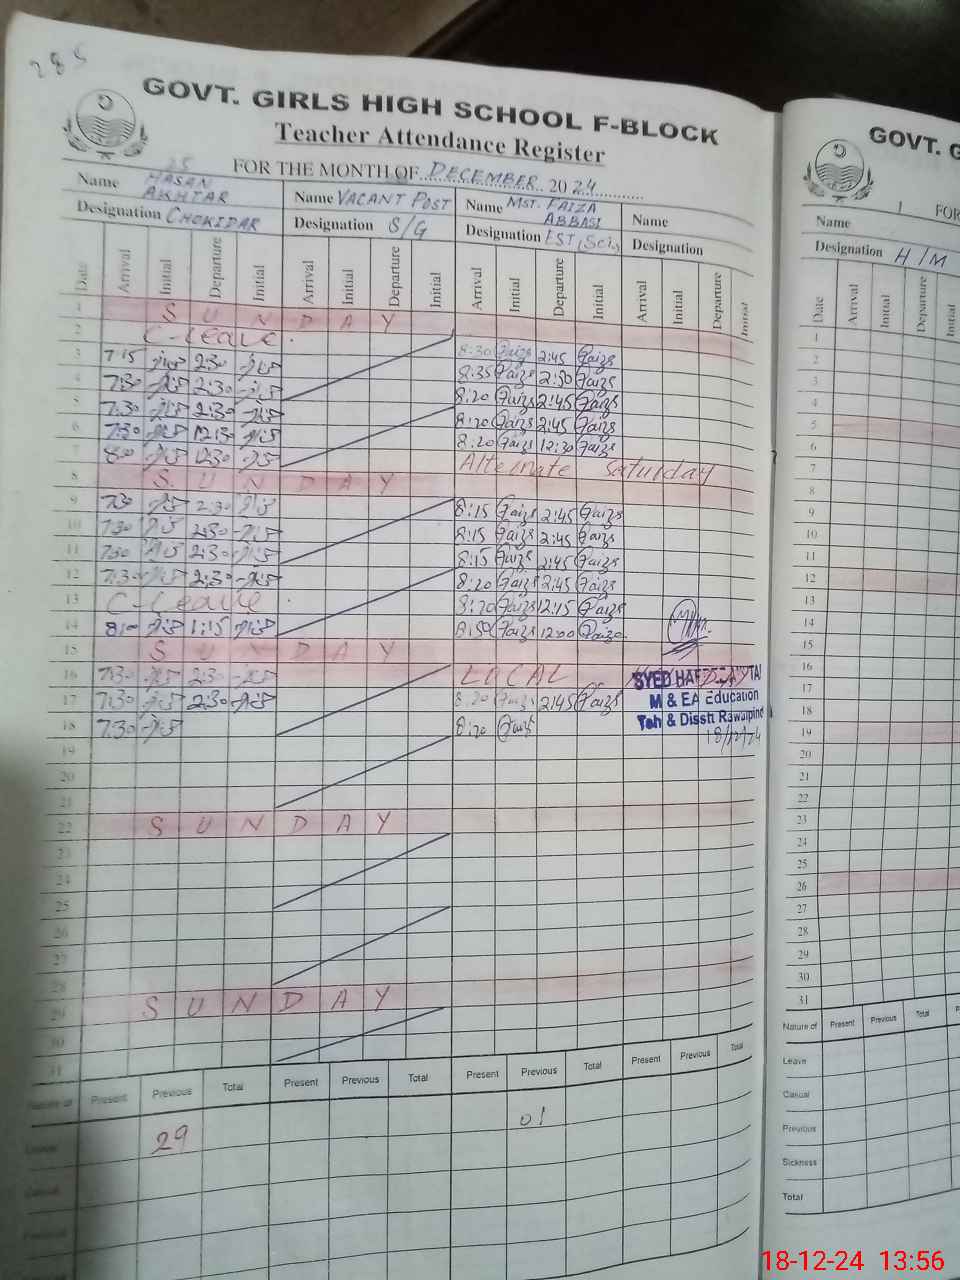 285
GOVT. GIRLS HIGH SCHOOL F-BLOCK
Teacher Attendance Register
FOR THE MONTH OF DECEMBER 2024
25
Name HASAN AKHTAR Name VACANT POST Name MST. FAIZA ABBASI Name
Designation CHOKIDAR Designation S/G Designation EST (Sci) Designation
Date Arrival Initial Departure Initial Arrival Initial Departure Initial Arrival Initial Departure Initial Arrival Initial Departure Initial
1 S U N D A Y
2 C-Leave. 8:30 Faiza 2:45 Faiza
3 7:15 2:30 8:35 Faiza 2:50 Faiza
4 7:30 2:30 8:20 Faiza 2:45 Faiza
5 7:30 2:30 8:20 Faiza 2:45 Faiza
6 7:30 12:30 8:20 Faiza 12:30 Faiza
7 8:00 12:30 Alternate Saturday
8 S U N D A Y
9 7:30 2:30 8:15 Faiza 2:45 Faiza
10 7:30 2:30 8:15 Faiza 2:45 Faiza
11 7:30 2:30 8:15 Faiza 2:45 Faiza
12 7:30 2:30 8:20 Faiza 2:45 Faiza
13 C-Leave 8:20 Faiza 12:15 Faiza
14 8:00 1:15 8:50 Faiza 12:00 Faiza
15 S U N D A Y
16 7:30 2:30 LOCAL
17 7:30 2:30 8:20 Faiza 2:45 Faiza
18 7:30 8:20 Faiza
SYED
M & EA Education
Teh & Disstt Rawalpindi
18/12/24
19
20
21
22 S U N D A Y
23
24
25
26
27
28
29 S U N D A Y
30
31
Nature of Present Previous Total Present Previous Total Present Previous Total Present Previous Total
Leave 29 01
Casual
Previous
GOVT. G
FOR
Name
Designation H/M
Date Arrival Initial Departure Initial
1
2
3
4
5
6
7
8
9
10
11
12
13
14
15
16
17
18
19
20
21
22
23
24
25
26
27
28
29
30
31
Nature of Present Previous Total
Leave
Casual
Previous
Sickness
Total
18-12-24 13:56